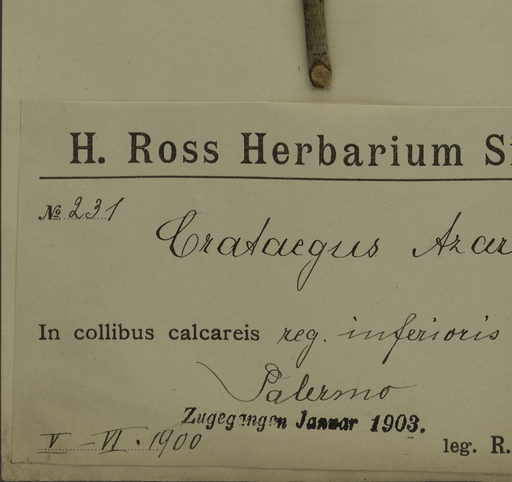 H. Ross Herbarium Si
№ 231
Crataegus Azar
In collibus calcareis reg. inferioris
Palermo
Zugegangen Januar 1903.
V - VI. 1900
leg. R.